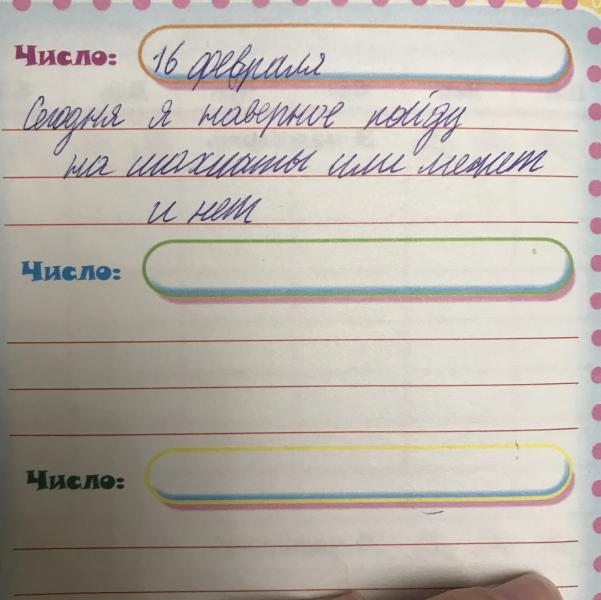 Число: 16 февраля
Сегодня я наверное пойду
на шахматы или может
и нет
Число:
Число: